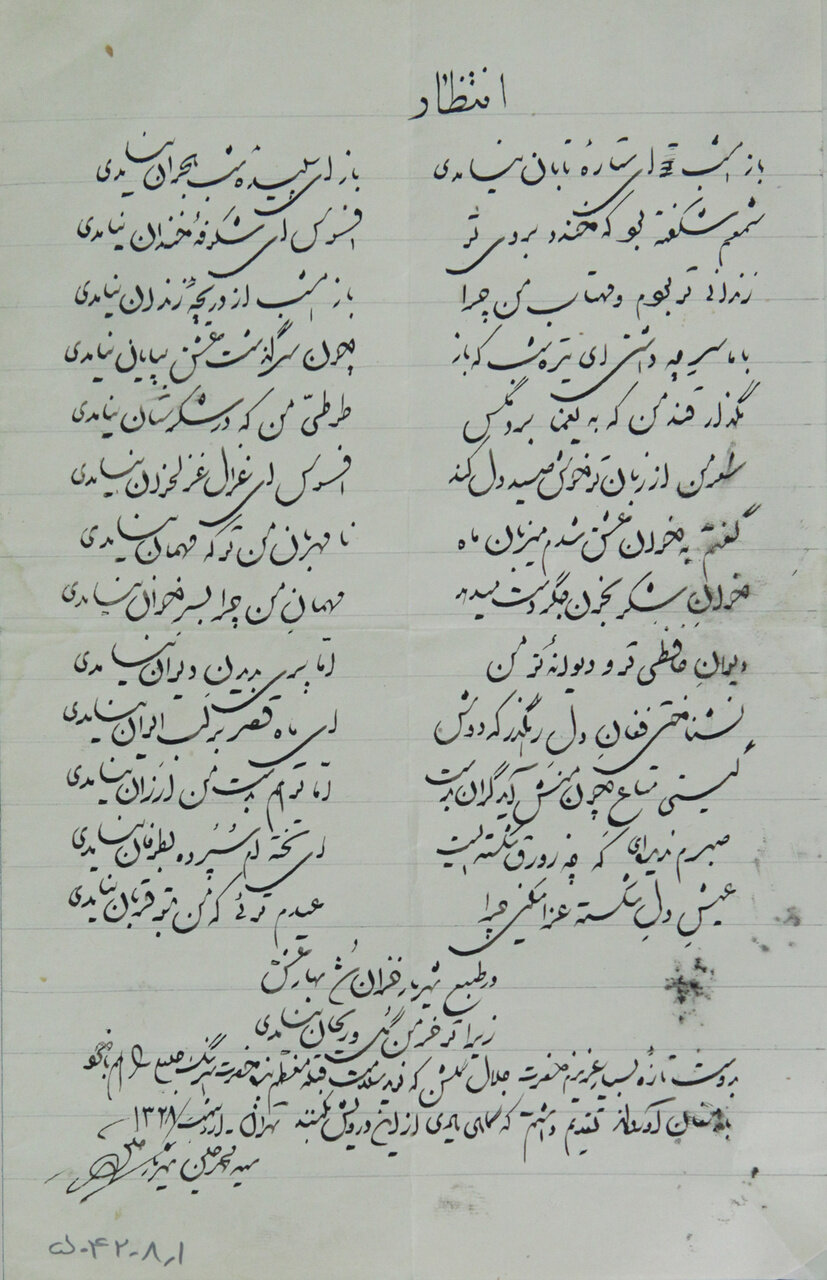 انتظار
باز امشب ای ستارهٔ تابان نیامدی باز ای سپیدهٔ شب هجران نیامدی
شمعم شکفته بود که خندد بروی تو افسوس ای شکوفهٔ خندان نیامدی
زندانی تو بودم و مهتاب من چرا باز امشب از دریچهٔ زندان نیامدی
با ما سر چه داشتی ای تیره شب که باز چون سرگذشت عشق بپایان نیامدی
مگذار قند من که به یغما برد مگس طوطیّ من که در شکرستان نیامدی
شعر من از زبان تو خوش صید دل کند افسوس ای غزال غزلخوان نیامدی
گفتم به خوان عشق شدم میزبان ماه نامهربان من تو که مهمان نیامدی
خوانِ شکر بخون جگر دست میدهد مهمانِ من چرا بسرِ خوان نیامدی
دیوانِ حافظی تو و دیوانهٔ تو من امّا پری بدیدن دیوان نیامدی
نشناختی فغانِ دلِ رهگذر که دوش ای ماه قصر بر لبِ ایوان نیامدی
گیتی متاع چون منش آید گران بدست امّا تو هم بدست من ارزان نیامدی
صبرم ندیده‌ای که چه زورق شکسته ایست ای تخته ام سپُرده بطوفان نیامدی
عیشِ دلِ شکسته عزا میکنی چرا عیدم توئی که من بتو قربان نیامدی
در طبع شهریار خزان شُد بهارِ عشق
زیرا تو خرمنِ گُل و ریحان نیامدی
بدوست تازهٔ بسیار عزیزم حضرت جلال که
تقدیم داشتم که از این درویش تهران - اردیبهشت ۱۳۲۸
سید محمد حسین شهریار
۵۰۴۲-۸ر۱